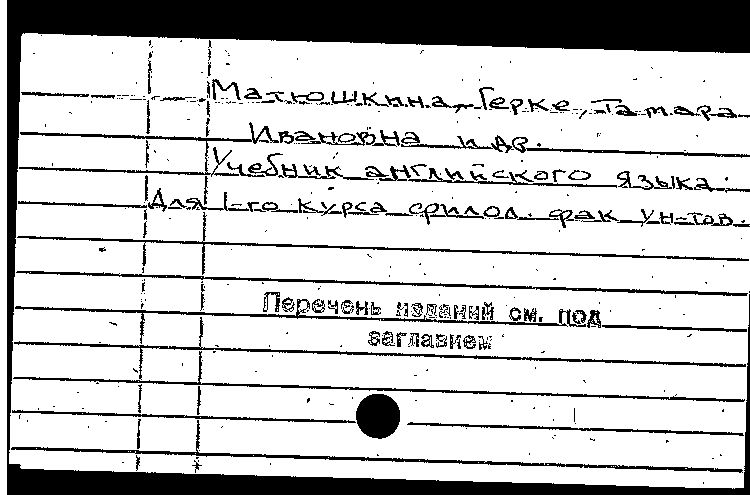 Матюшкина-Герке, Тамара
Ивановна и др.
Учебник английского языка:
Для 1-го курса филол. фак. ун-тов.
Перечень изданий см. под
заглавием